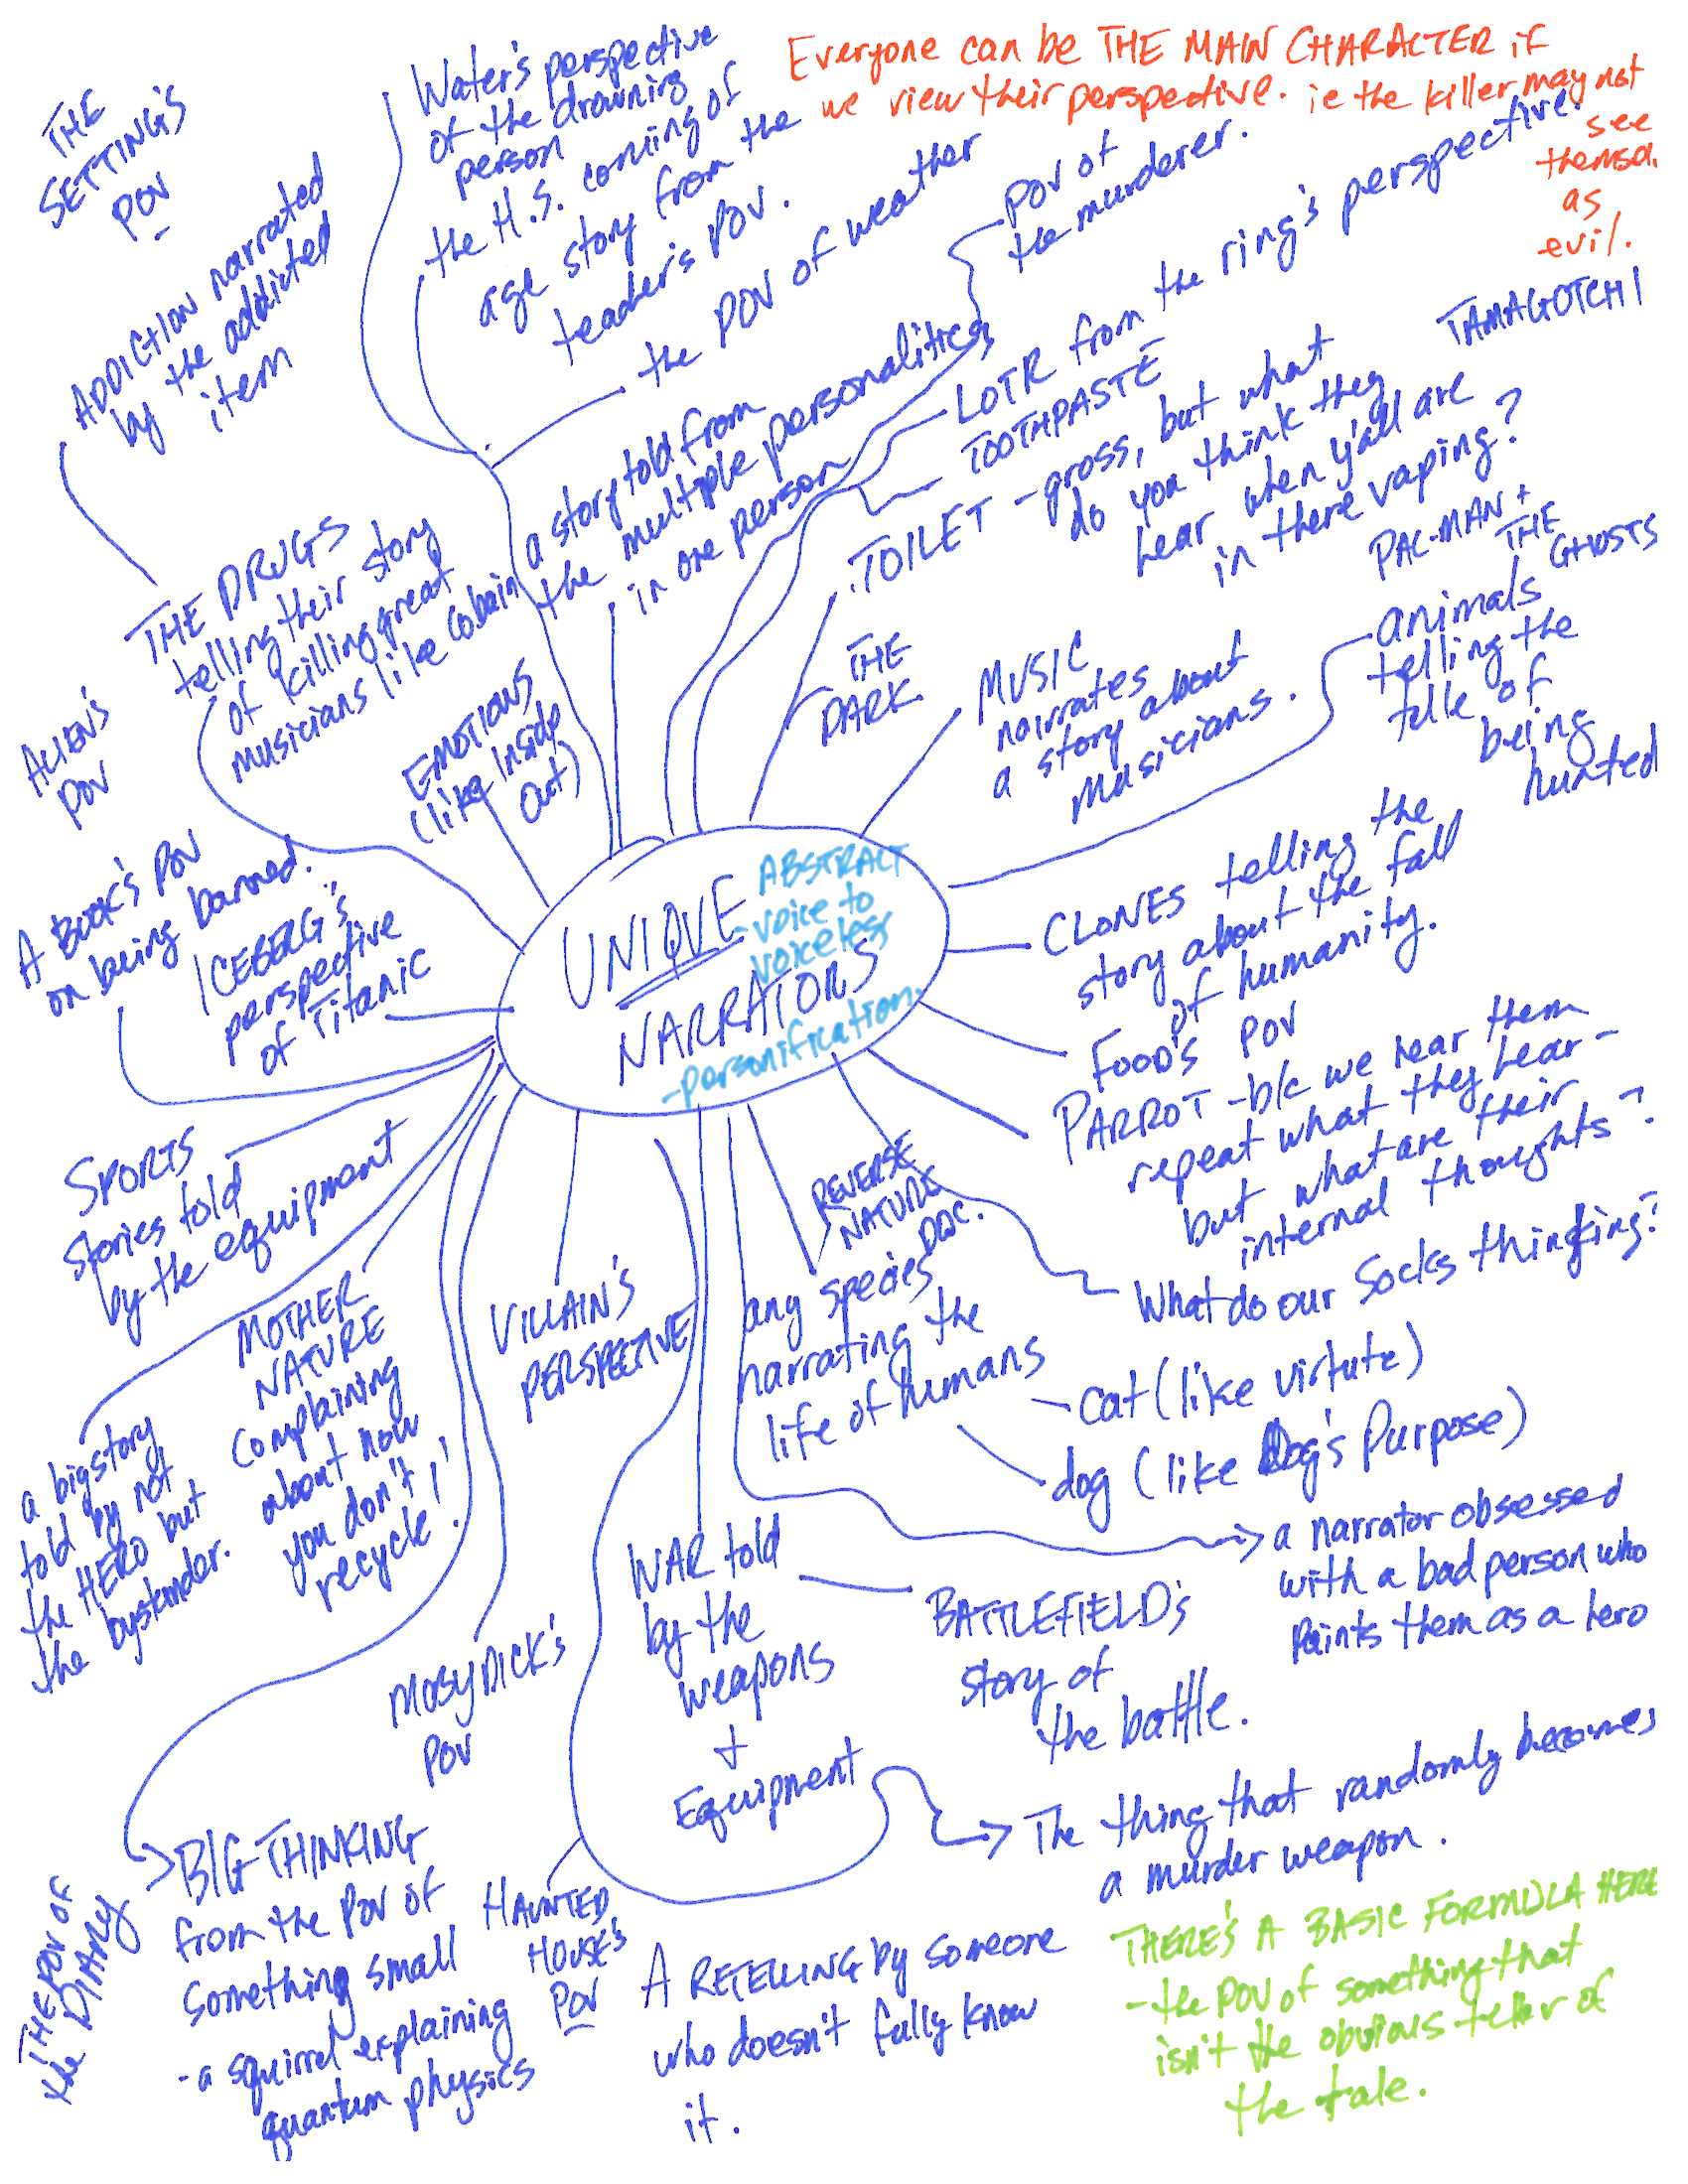 Everyone can be THE MAIN CHARACTER if
we view their perspective. ie the killer may not
see
themsel.
as
evil.
THE
SETTING'S
POV
Water's perspective
of the drowning
person
the H.S. coming of
age story from the
teacher's POV.
the POV of weather
POV of
the murderer.
LOTR from the ring's perspective.
TOOTHPASTE
TAMAGOTCHI
TOILET - gross, but what
do you think they
hear when y'all are
in there vaping?
PAC-MAN +
THE
GHOSTS
ADDICTION narrated
by the addicted
item
THE DRUGS
telling their story
of killing great
musicians like Cobain
a story told from
the multiple personalities
in one person
EMOTIONS
(like Inside
Out)
THE
DARK
MUSIC
narrates
a story about
musicians.
animals
telling the
talle of
being
hunted
ALIEN'S
POV
A BOOK'S POV
on being banned.
ICEBERG'S
perspective
of Titanic
UNIQUE
NARRATORS
ABSTRACT
- voice to
voiceless
- personification.
CLONES telling the
story about the fall
of humanity.
FOOD'S POV
PARROT - b/c we hear them
repeat what they hear -
but what are their
internal thoughts?
What do our Socks thinking?
SPORTS
stories told
by the equipment
MOTHER
NATURE
complaining
about how
you don't
recycle!
VILLAIN'S
PERSPECTIVE
REVERSE
NATURE
DOC.
any species
narrating the
life of humans
cat (like virtute)
dog (like Dog's Purpose)
a narrator obsessed
with a bad person who
paints them as a hero
a big story
told by not
the HERO but
the bystander.
MOBY DICK'S
POV
WAR told
by the
weapons
+
Equipment
BATTLEFIELD's
story of
the battle.
The thing that randomly becomes
a murder weapon.
THE POV OF
the DIARY
BIG THINKING
from the POV of
something small
- a squirrel explaining
quantum physics
HAUNTED
HOUSE'S
POV
A RETELLING by someone
who doesn't fully know
it.
THERE'S A BASIC FORMULA HERE
- the POV of something that
isn't the obvious teller of
the tale.